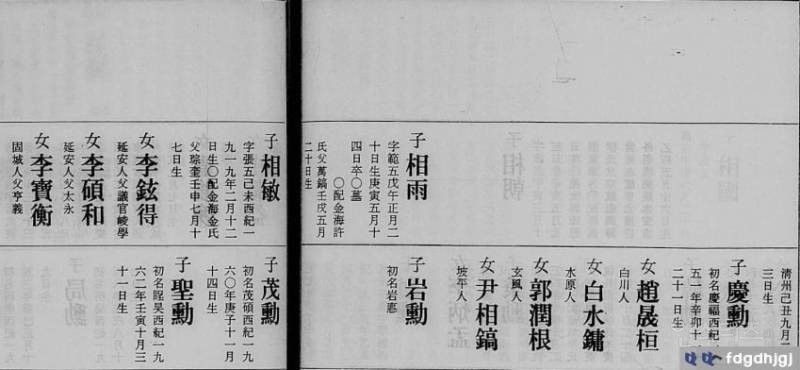 子 相雨
字範五戊午正月二
十日生庚寅五月十
四日卒〇墓
〇配金海許
氏父萬鎬壬戌五月
二十日生
子 相敏
字張五己未西紀一
九一九年二月十二
日生〇配金海金氏
父琮奎壬申七月十
七日生
女 李鉉得
延安人父議官
女 李碩和
延安人父太永
女 李寶衡
固城人父亨義
清州己丑九月
三日生
子 慶勳
初名慶福西紀一九
五一年辛卯十
二十一日生
女 趙晟桓
白川人
女 白水鏞
水原人
女 郭潤根
玄風人
女 尹相鎬
坡平人
子 岩勳
初名岩憲
子 茂勳
初名茂碩西紀一九
六〇年庚子十一月
十四日生
子 聖勳
初名昆吳西紀一九
六二年壬寅十月三
十一日生
fdgdhjgj